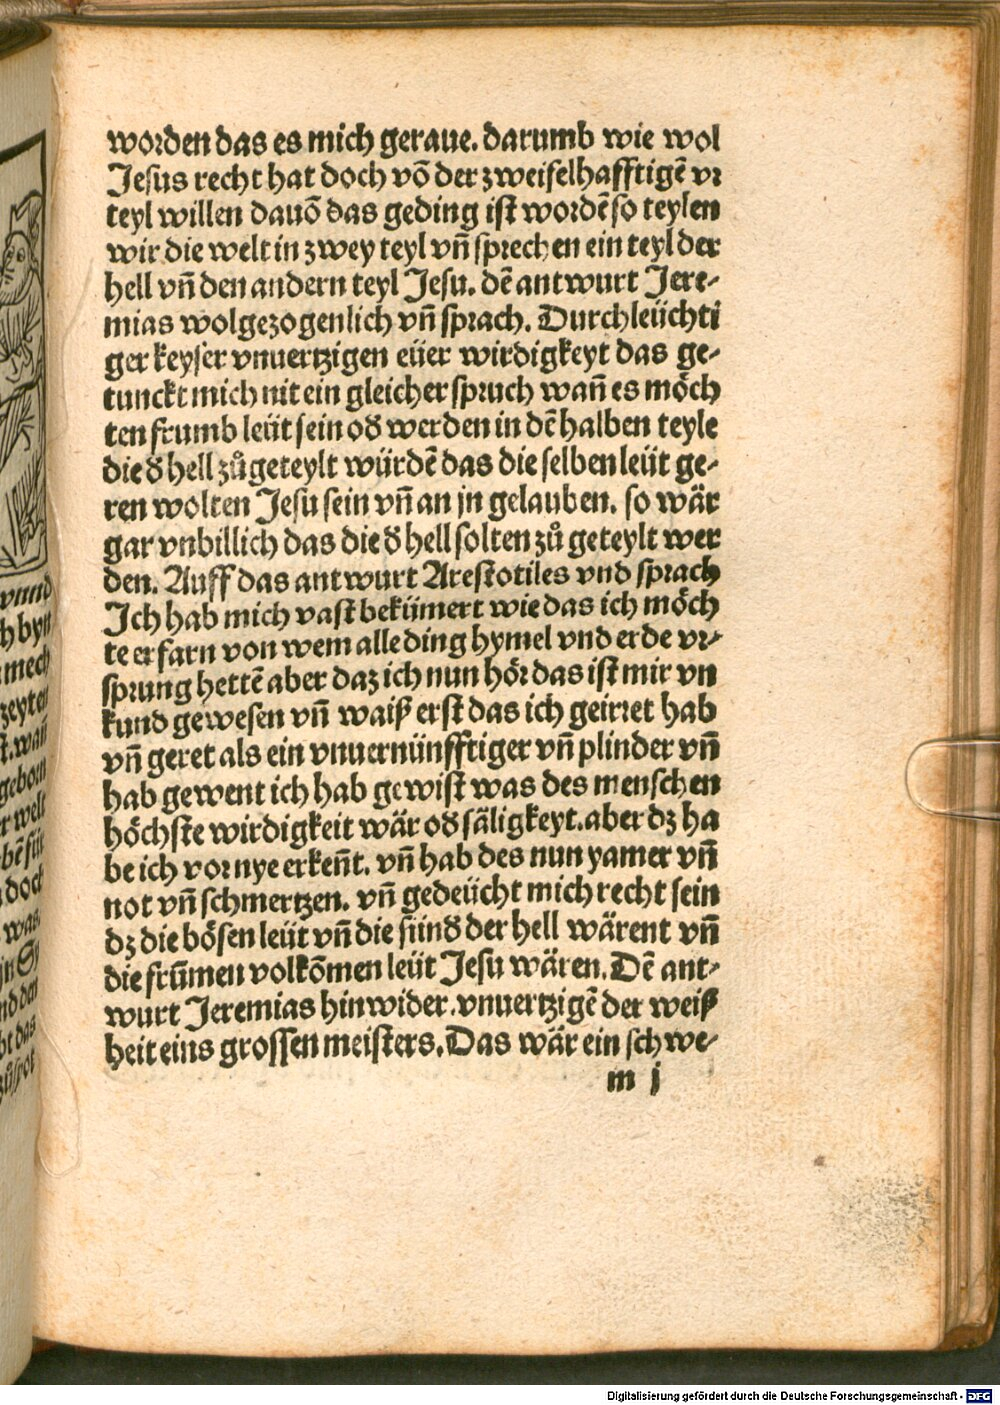 worden das es mich geraue. darumb wie wol
Jesus recht hat doch võ der zweifelhafftigẽ vr
teyl willen dauõ das geding ist wordẽ so teylen
wir die welt in zwey teyl vñ sprechen ein teyl der
hell vñ den andern teyl Jesu. dẽ antwurt Jere⸗
mias wolgezogenlich vñ sprach. Durchleüchti
ger keyser vnuertzigen eüer wirdigkeyt das ge⸗
tunckt mich nit ein gleicher spruch wañ es möch
ten frumb leüt sein oď werden in dẽ halben teyle
die ď hell zůgeteylt würdẽ das die selben leüt ge⸗
ren wolten Jesu sein vñ an jn gelauben. so wär
gar vnbillich das die ď hell solten zů geteylt wer
den. Auff das antwurt Arestotiles vnd sprach
Ich hab mich vast bekümert wie das ich möch
te erfarn von wem alle ding hymel vnd erde vr⸗
sprung hettẽ aber daz ich nun hör das ist mir vn
kund gewesen vñ waiß erst das ich geirret hab
vñ geret als ein vnuernünfftiger vñ plinder vñ
hab gewent ich hab gewist was des menschen
höchste wirdigkeit wär oď säligkeyt. aber dz ha
be ich vor nye erkeñt. vñ hab des nun yamer vñ
not vñ schmertzen. vñ gedeücht mich recht sein
dz die bösen leüt vñ die sünď der hell wärent vñ
die frũmen volkõmen leüt Jesu wären. Dẽ ant⸗
wurt Jeremias hinwider. vnuertzigẽ der weiß
heit eins grossen meisters. Das wär ein schwe⸗
m j
vnnd
h byn
mech
zeyten
st. wañ
geborn
r welt
bẽ für
doch
was
in Sy
nd den
bt das
zů spot
Digitalisierung gefördert durch die Deutsche Forschungsgemeinschaft - DFG